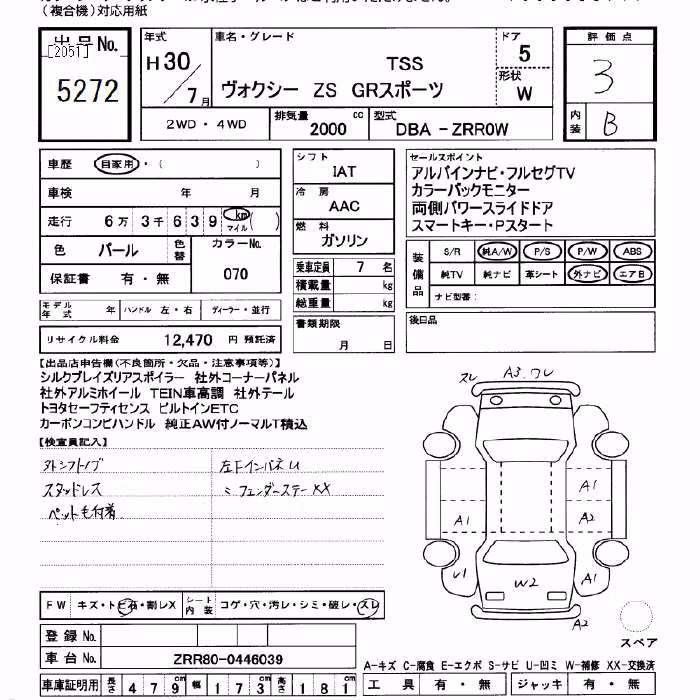 （複合機）対応用紙
出品No.
[2051]
5272
年式
H30／7月
車名・グレード
TSS
ヴォクシー ZS GRスポーツ
ドア
5
形状
W
評価点
3
内装
B
2WD・4WD
排気量
2000 cc
型式
DBA-ZRR0W
車歴 自家用・( )
車検 年 月
走行 6万3千639 km マイル( )
色 パール 色替 カラーNo. 070
保証書 有・無
シフト
IAT
冷房
AAC
燃料
ガソリン
乗車定員 7 名
積載量 kg
総重量 kg
セールスポイント
アルパインナビ・フルセグTV
カラーバックモニター
両側パワースライドドア
スマートキー・Pスタート
装備品
S/R 純A/W P/S P/W ABS
純TV 純ナビ 革シート 外ナビ エアB
ナビ型番：
モデル年式 年 ハンドル 左・右 ディーラー・並行
リサイクル料金 12,470 円 預託済
書類期限
月 日
後日品
【出品店申告欄(不良箇所・欠品・注意事項等)】
シルクブレイズリアスポイラー 社外コーナーパネル
社外アルミホイール TEIN車高調 社外テール
トヨタセーフティセンス ビルトインETC
カーボンコンビハンドル 純正AW付ノーマルT積込
【検査員記入】
外シフトノブ
スタッドレス
ペット毛付着
左Fインパネ U
ミ フェンダーステー XX
スレ
A3.ワレ
A1
A1
A2
A1
U1
W2
A2
スペア
FW キズ・トビ石・割レX シート内装 コゲ・穴・汚レ・シミ・破レ・スレ
登録No.
車台No. ZRR80-0446039
A-キズ C-腐食 E-エクボ S-サビ U-凹ミ W-補修 XX-交換済
車庫証明用 長さ 479cm 幅 173cm 高さ 181cm
工具 有・無 ジャッキ 有・無